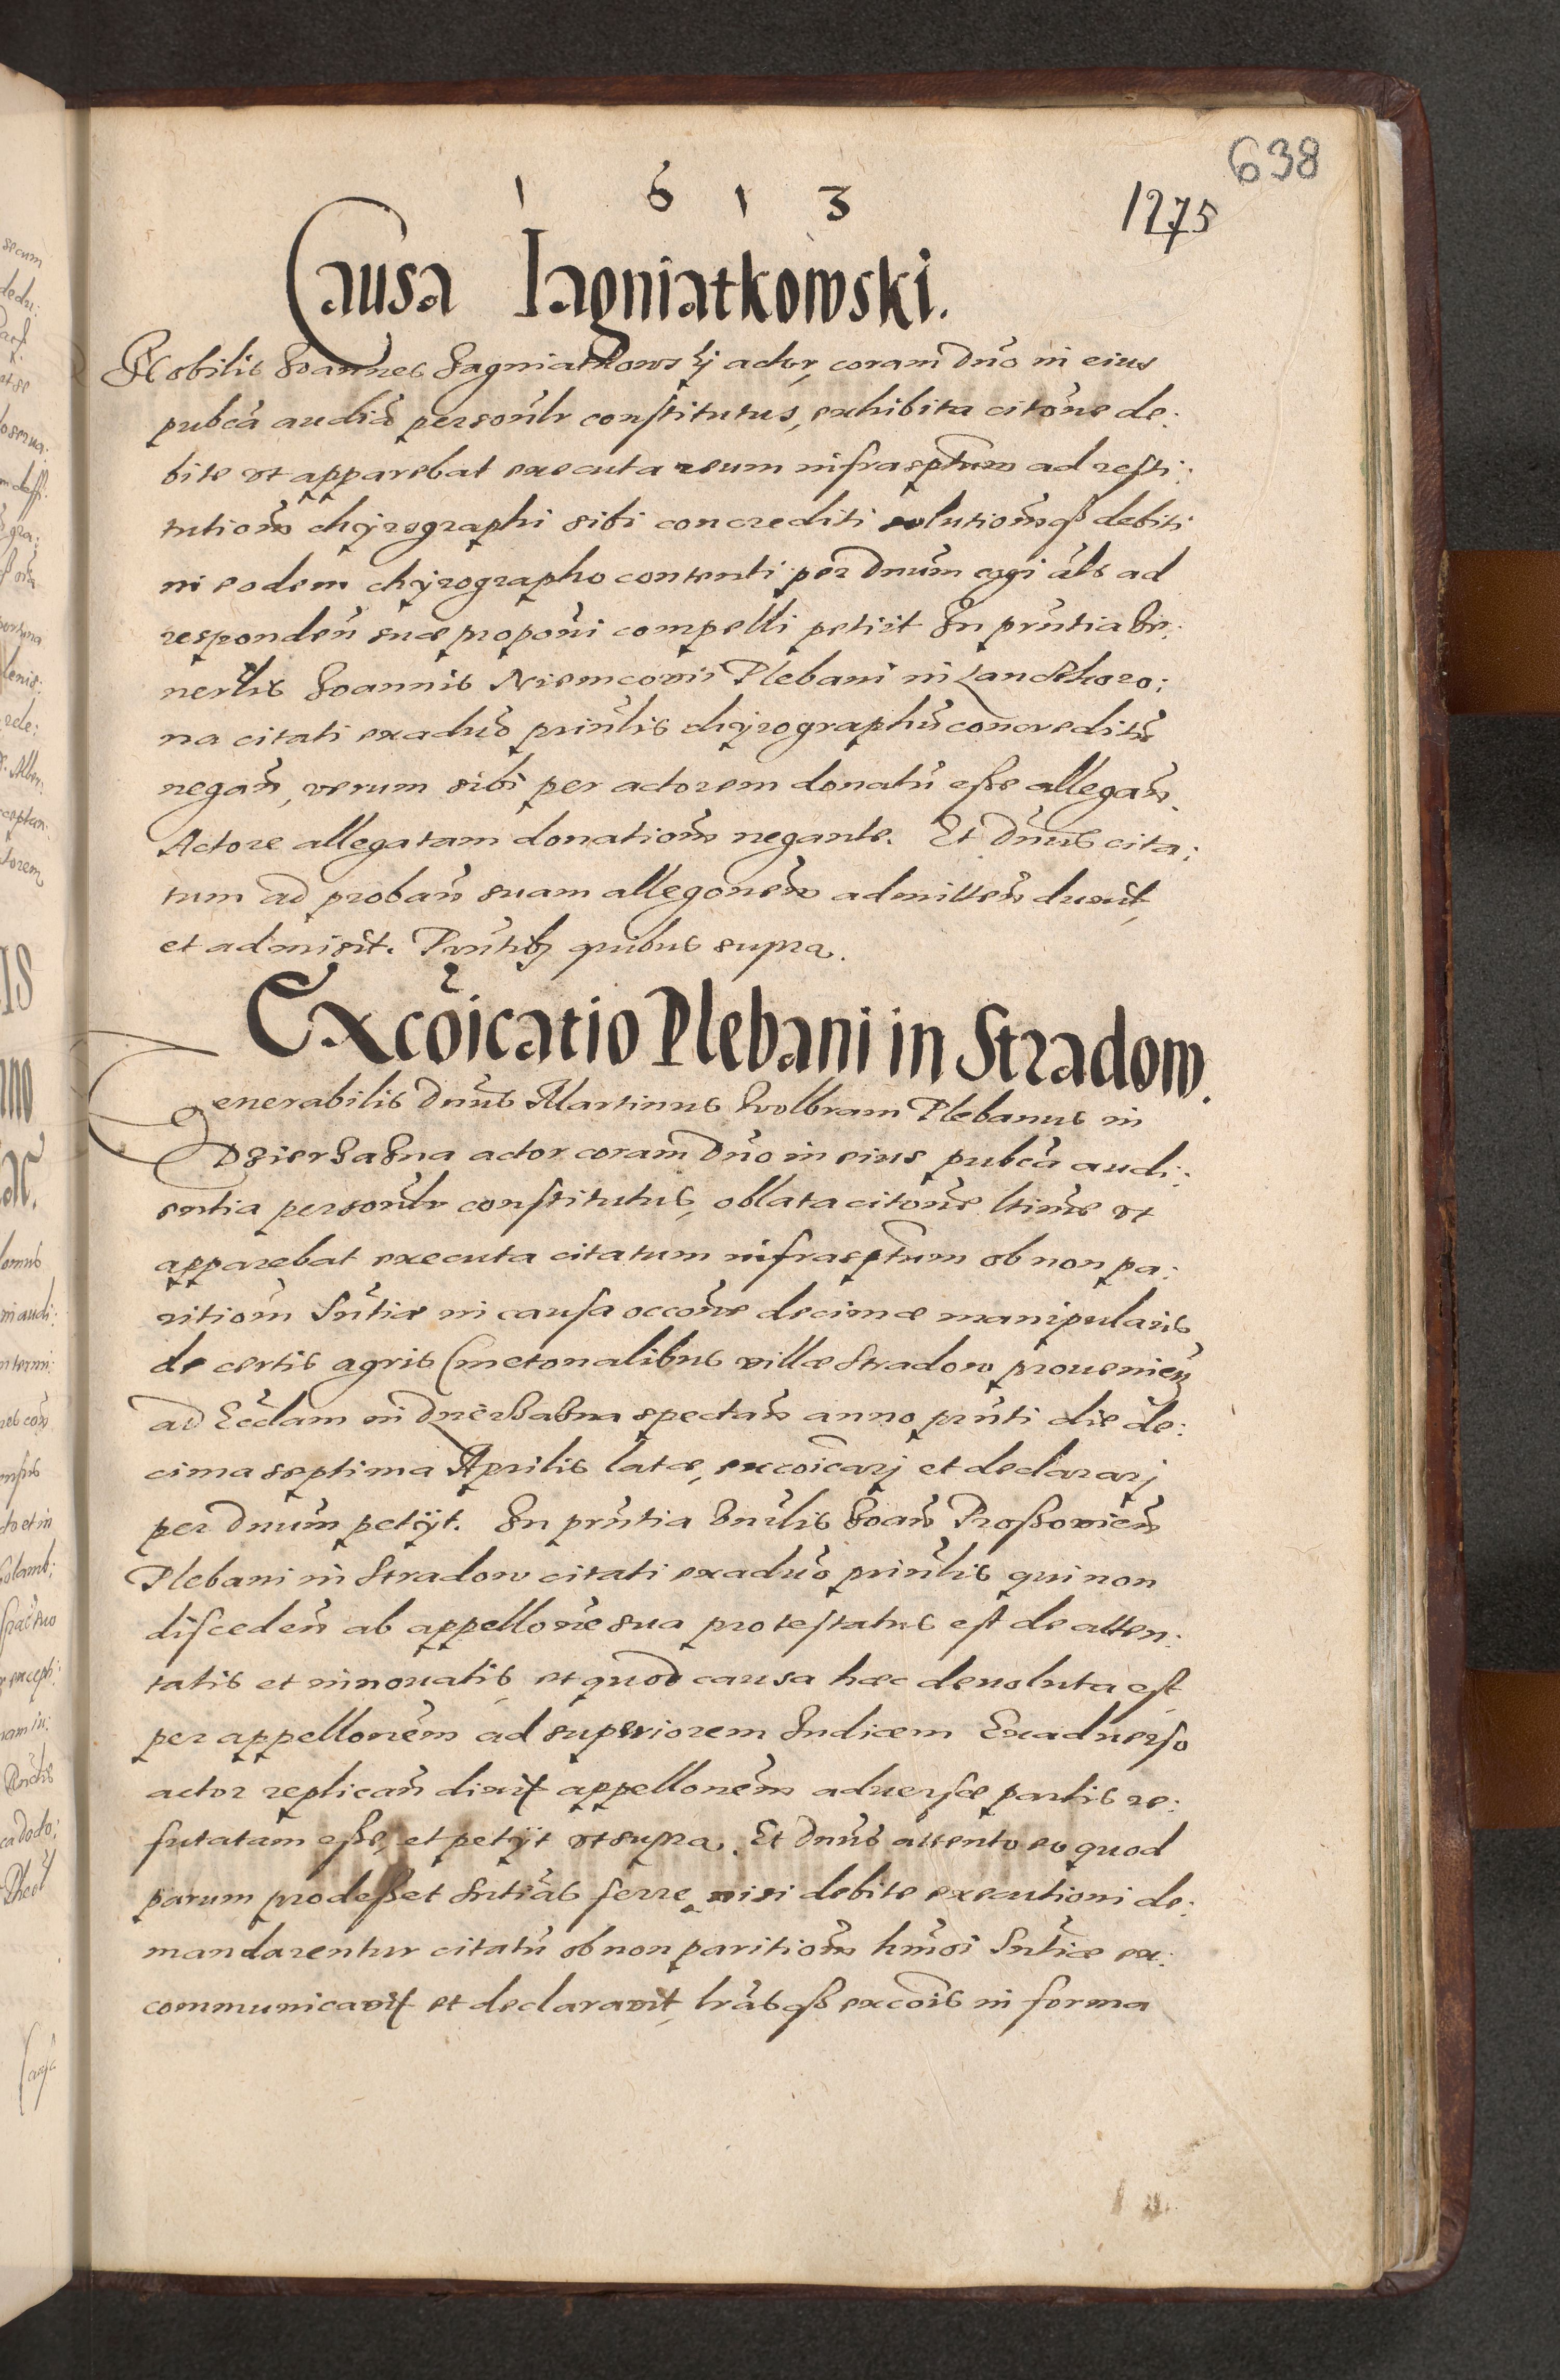 638
1 6 1 3
1275
Causa Iagniatkowski.
Nobilis Joannes Jagniatkowskj actor, coram Dño in eius
pubca audia personlr constitutus, exhibita citõne de:
bite vt apparebat executa reum infrasptum ad resti:
tutiom chÿrographi sibi concrediti solutiomqß debiti
in eodem chÿrographo contenti per Dnum cogi als ad
responden suæ proponi compelli petiit In pruntia Ve:
nerlis Joannis Niemcovii Plebani in Landskoro:
na citati exaduo prinlis chÿrographu concreditu
negan, verum sibi per actorem donatu esse allegan.
Actore allegatam donatiom negante. Et Dnus cita:
tum ad proban suam allegonem admitten duxit,
et admisit. Pruntibq quibus supra.
Excoicatio Plebani in Stradow.
Venerabilis Dnus Martinus Wolbram Plebanus in
Dzierzazna actor coram Dno in eius pubca audi:
entia personlr constitutus, oblata citone ltime vt
apparebat executa citatum infrasptum ob non pa:
ritiom Sntiæ in causa occone decimæ manipularis
de certis agris Cmetonalibus villæ Stradow prouenien
ad Eccłam in Dzierzazna spectan anno prnti die de:
cima septima Aprilis latæ, excoicarj et declararj
per Dnum petÿt. In prntia Vnrlis Joan Proßovien
Plebani in Stradow citati exaduo prinlis qui non
disceden ab appellone sua protestatus est de atten:
tatis et innouatis, et quod causa hæc deuoluta est
per appellonem ad superiorem Iudicem Exaduerso
actor replican dixit appellonem aduersæ partis re:
futatam esse, et petÿt vt supra. Et Dnus attento eo quod
parum prodeßet Sntias ferre nisi debite executioni de:
mandarentur citatu ob non paritiom hmoi Sntiæ ex:
communicavit et declaravit, lrasqß excois in forma